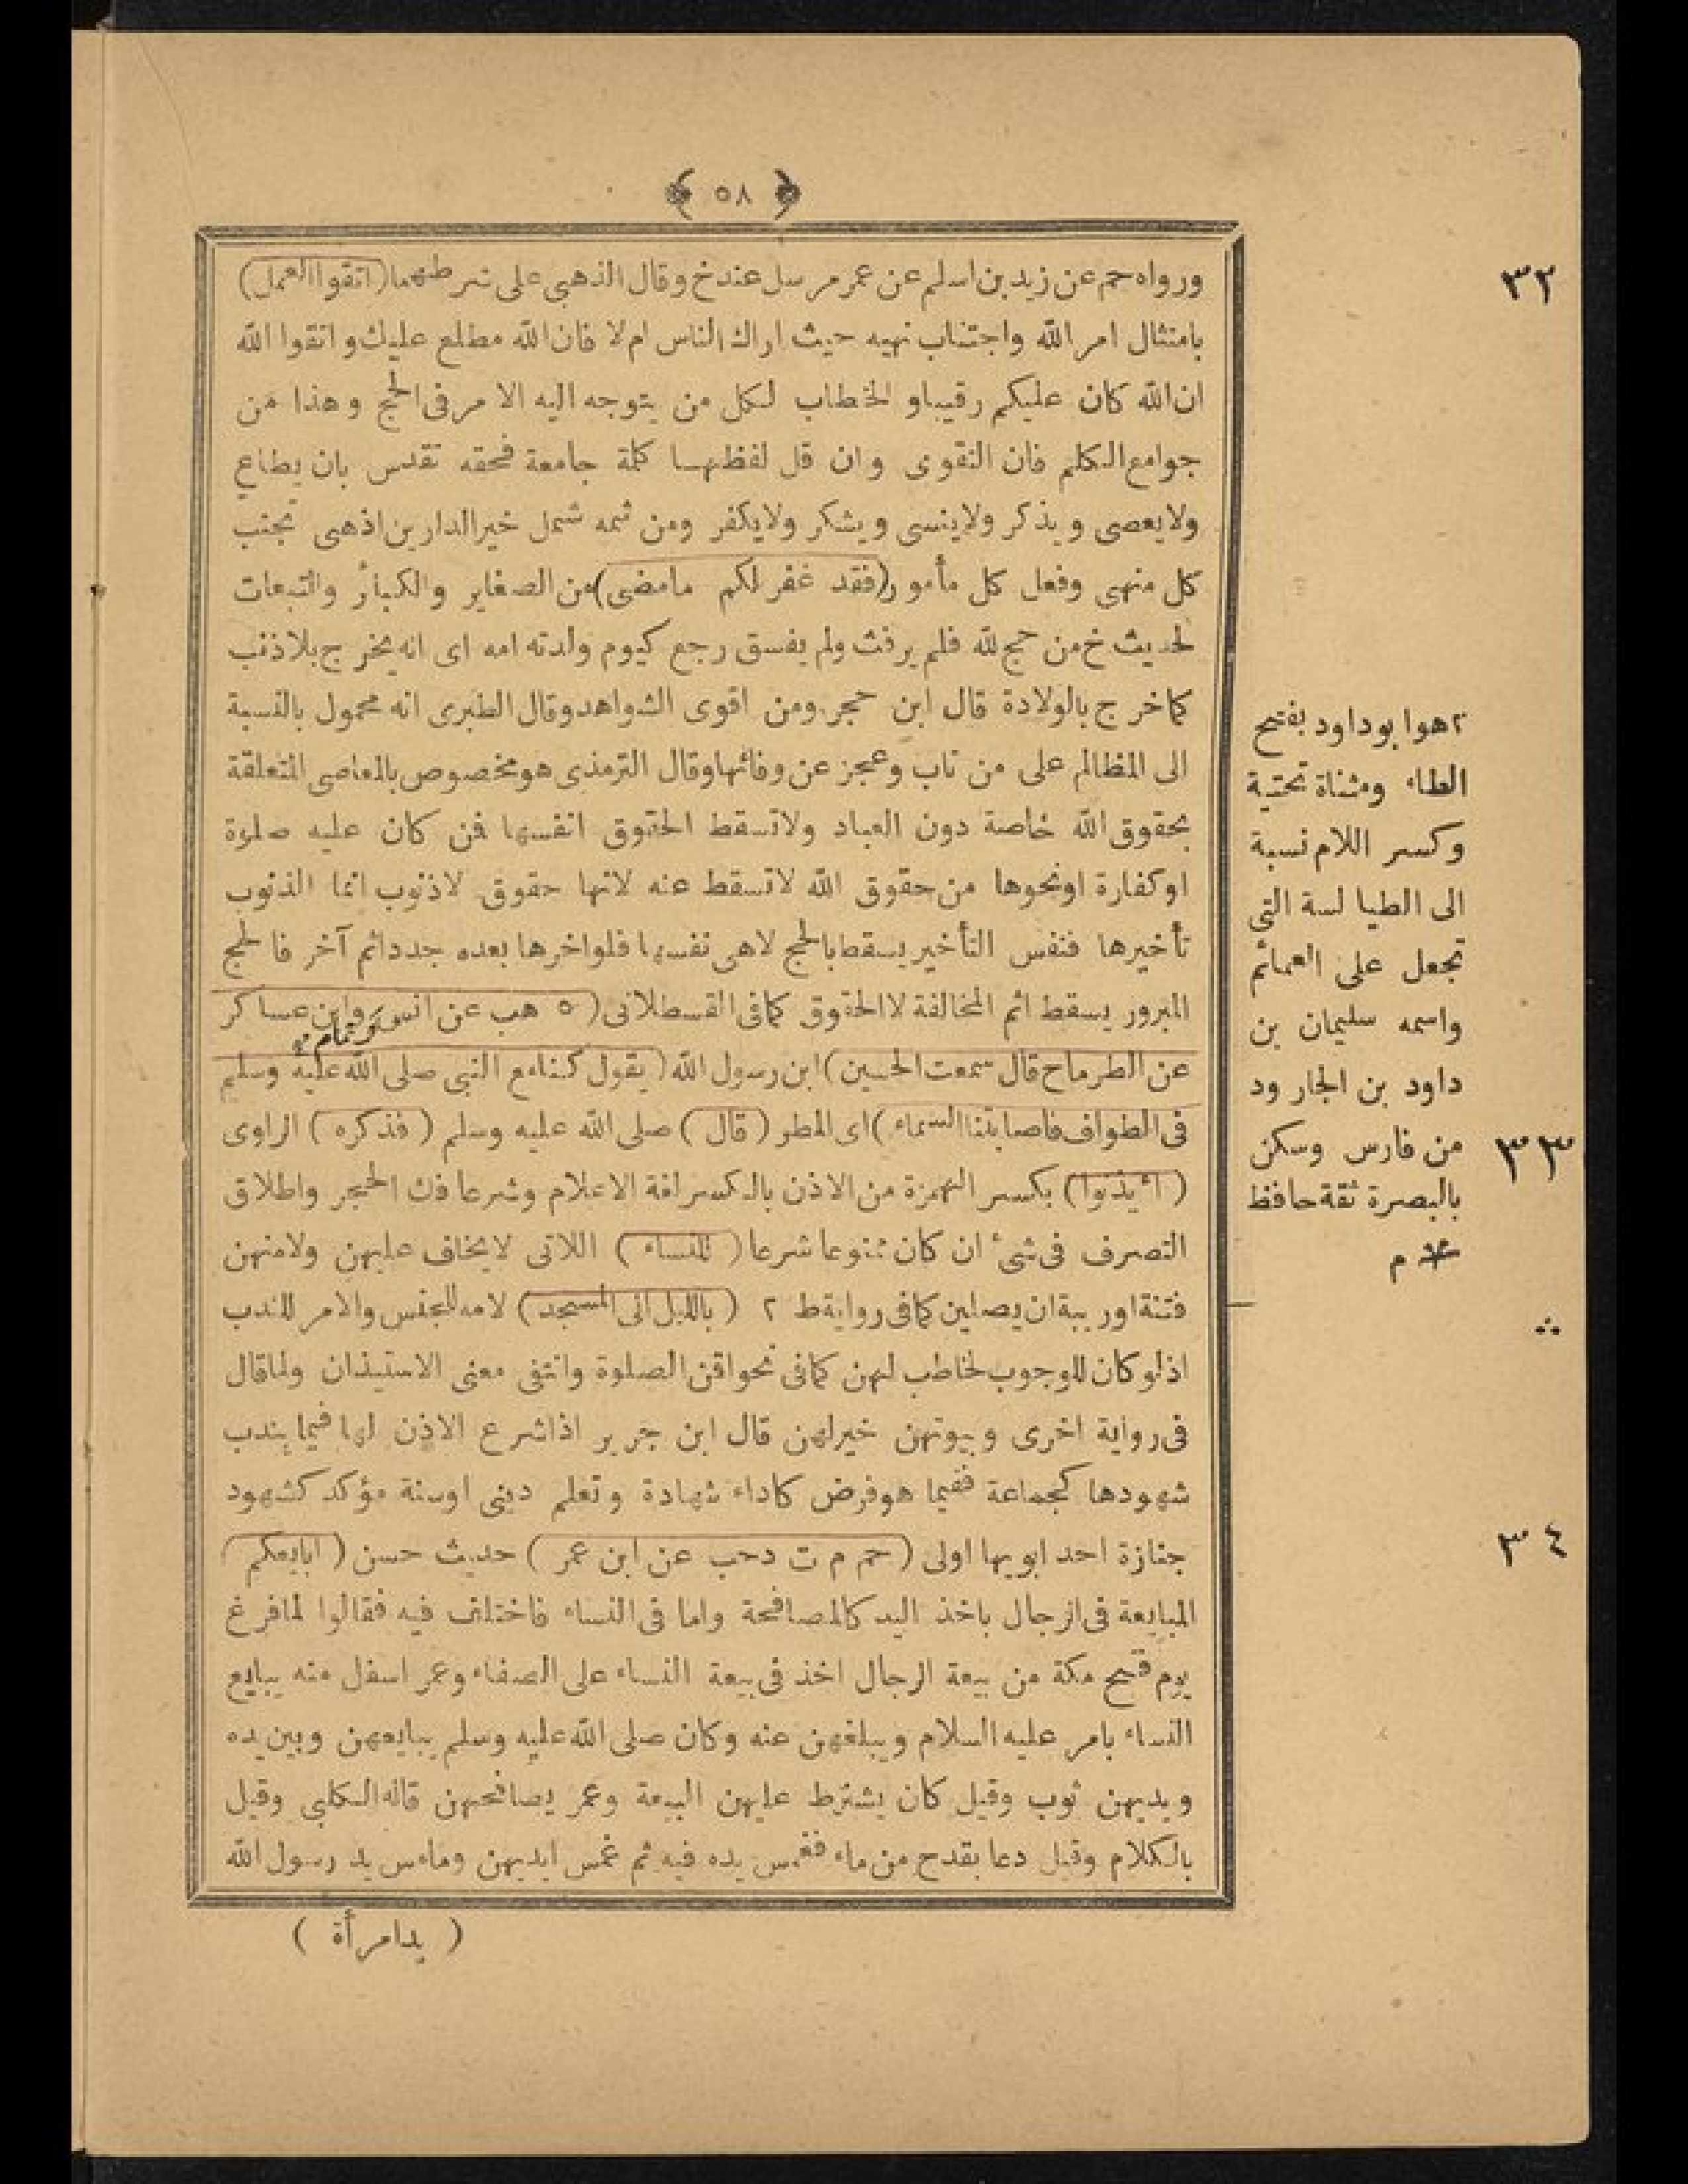 ﴿ ٥٨ ﴾
ورواه حم عن زيد بن اسلم عن عمر مرسل عند خ وقال الذهبى على شرطهما (اتقوا العمل)
بامتثال امر الله واجتناب نهيه حيث اراك الناس ام لا فان الله مطلع عليك واتقوا الله
ان الله كان عليكم رقيبا و الخطاب لكل من يتوجه اليه الامر فى الحج وهذا من
جوامع الكلم فان التقوى وان قل لفظها كلمة جامعة فحقه تقدس بان يطاع
ولا يعصى ويذكر ولا ينسى ويشكر ولا يكفر ومن ثمه شمل خير الدارين اذ هى تجنب
كل منهى وفعل كل مأمور (فقد غفر لكم مامضى) من الصغاير والكبائر والتبعات
لحديث خ من حج لله فلم يرفث ولم يفسق رجع كيوم ولدته امه اى انه يخرج بلا ذنب
كما خرج بالولادة قال ابن حجر ومن اقوى الشواهد وقال الطبرى انه محمول بالنسبة
الى المظالم على من تاب وعجز عن وفائها وقال الترمذى هو مخصوص بالمعاصى المتعلقة
بحقوق الله خاصة دون العباد ولا تسقط الحقوق انفسها فمن كان عليه صلوة
او كفارة او نحوها من حقوق الله لا تسقط عنه لانها حقوق لا ذنوب انما الذنوب
تأخيرها فنفس التأخير يسقط بالحج لا هى نفسها فلو اخرها بعده جدد اثم آخر فالحج
المبرور يسقط اثم المخالفة لا الحقوق كما فى القسطلانى (٥ هب عن انس وابن عساكر
عن الطرماح قال سمعت الحسين) ابن رسول الله (يقول كنا مع النبى صلى الله عليه وسلم
فى الطواف فاصابتنا السماء) اى المطر (قال) صلى الله عليه وسلم (فذكره) الراوى
(ائذنوا) بكسر الهمزة من الاذن بالكسر لغة الاعلام وشرعا فك الحجر واطلاق
التصرف فى شئ ان كان ممنوعا شرعا (للنساء) اللاتى لا يخاف عليهن ولا منهن
فتنة او ريبة ان يصلين كما فى رواية ط ٢ (بالليل الى المسجد) لامه للجنس والامر للندب
اذ لو كان للوجوب لخاطب لهن كما فى نحو اقن الصلوة وانتفى معنى الاستيذان ولما قال
فى رواية اخرى وبيوتهن خير لهن قال ابن جرير اذا شرع الاذن لها فيما يندب
شهودها كجماعة ففيما هو فرض كاداء شهادة وتعلم دينى او سنة مؤكد كشهود
جنازة احد ابويها اولى (حم م ت د حب عن ابن عمر) حديث حسن (ابايعكم)
المبايعة فى الرجال باخذ اليد كالمصافحة واما فى النساء فاختلف فيه فقالوا لما فرغ
يوم فتح مكة من بيعة الرجال اخذ فى بيعة النساء على الصفاء وعمر اسفل منه يبايع
النساء بامر عليه السلام ويبلغهن عنه وكان صلى الله عليه وسلم يبايعهن وبين يده
ويديهن ثوب وقيل كان يشترط عليهن البيعة وعمر يصافحهن قاله الكلبى وقيل
بالكلام وقيل دعا بقدح من ماء فغمس يده فيه ثم غمس ايديهن وما مس يد رسول الله
( يد امرأة )
٣٢
٢ هو ابو داود بفتح
الطاء ومثناة تحتية
وكسر اللام نسبة
الى الطيالسة التى
تجعل على العمائم
واسمه سليمان بن
داود بن الجارود
من فارس وسكن
بالبصرة ثقة حافظ
م
٣٣
٣٤